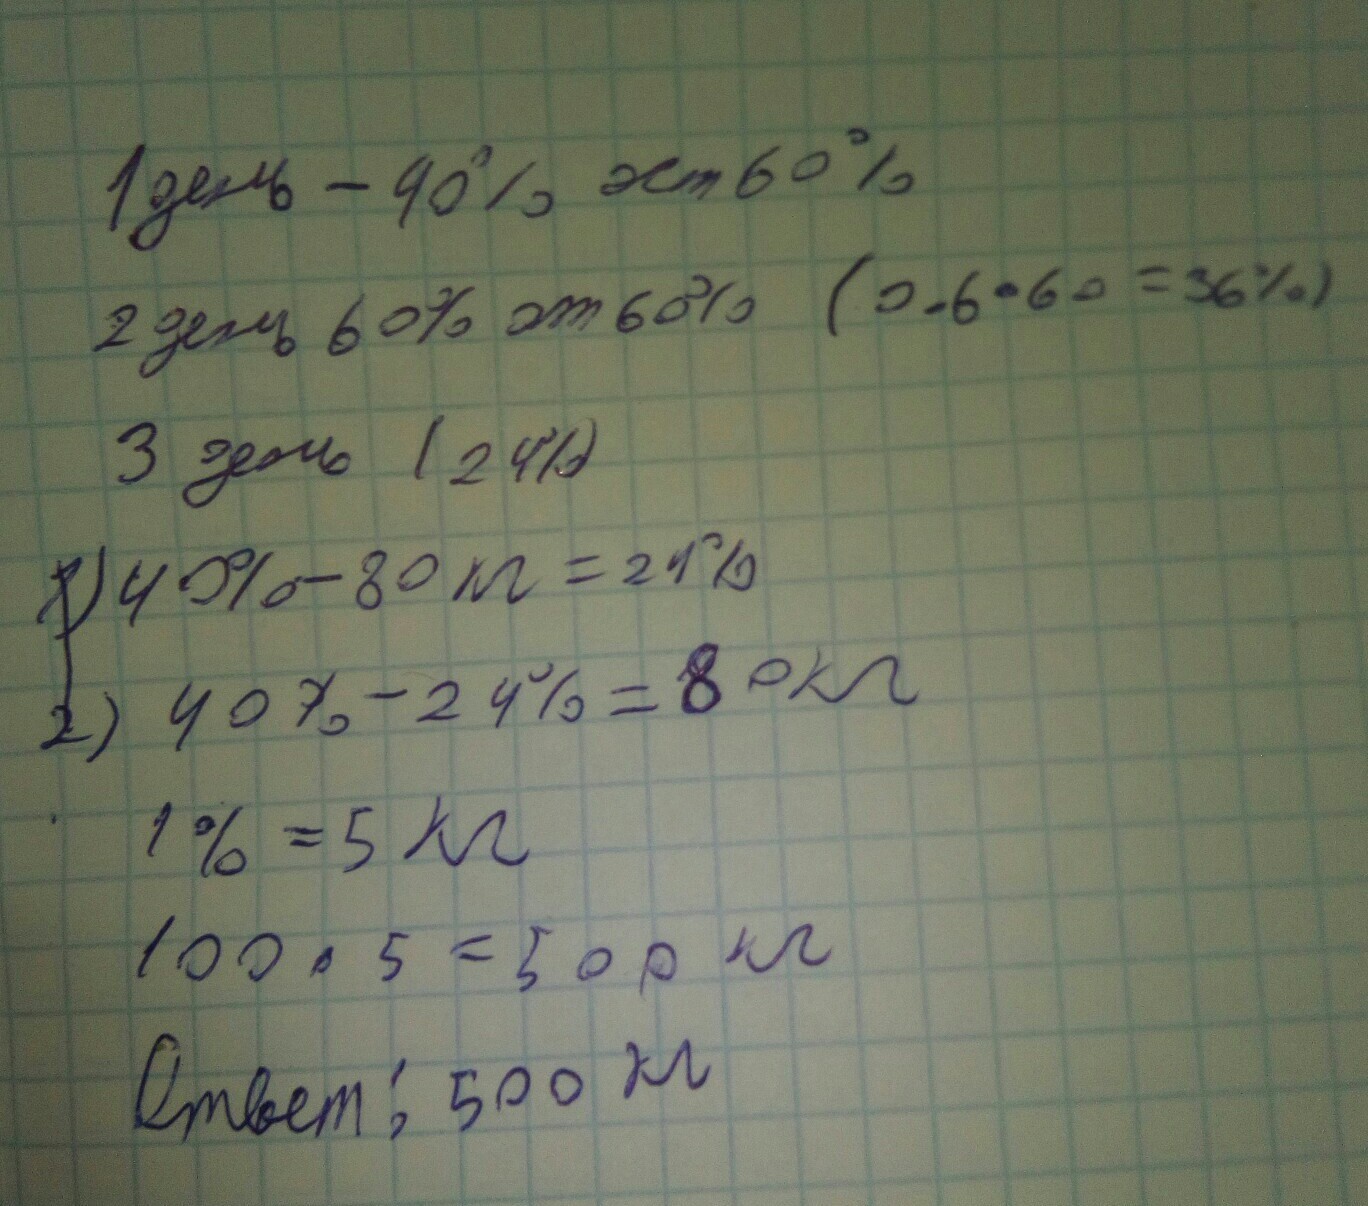 1 день - 40% ост 60%
2 день 60% от 60% (0.6•60=36%)
3 день (24%)
1) 40%-80 кг=24%
2) 40%-24%=80кг
1%=5 кг
100•5=500 кг
Ответ: 500 кг